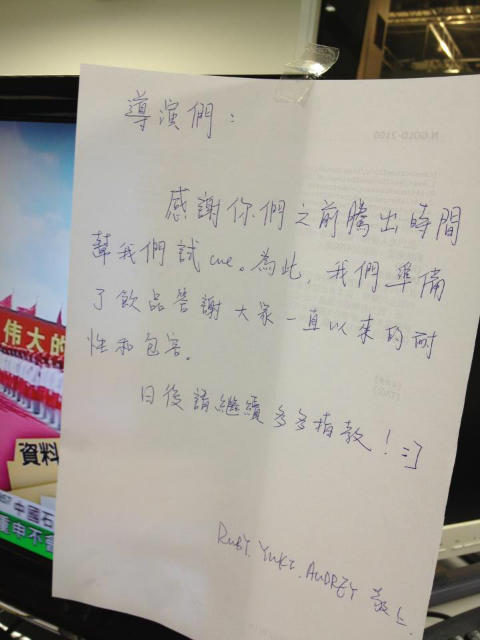 導演們：
感謝你們之前騰出時間
幫我們試cue。為此，我們準備
了飲品答謝大家一直以來的耐
性和包容。
日後請繼續多多指教！=]
RUBY, YUKI, AUDREY 敬上
N.GOLD-2100
偉大的
資料
中國石
重申不會